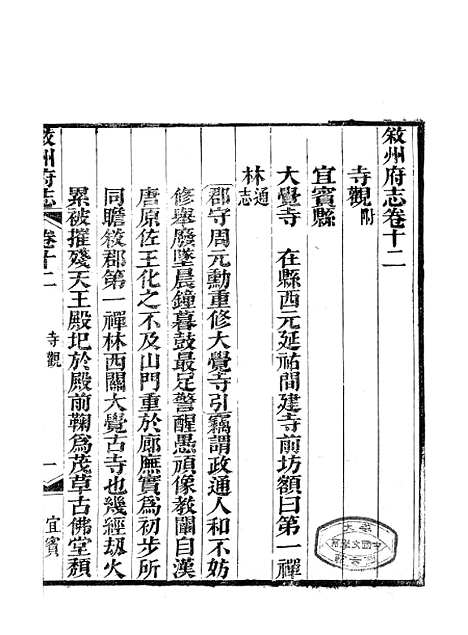 敘州府志卷十二
寺觀附
宜賓縣
大覺寺 在縣西元延祐間建寺前坊額曰第一禪
林通志
郡守周元勳重修大覺寺引竊謂政通人和不妨
修舉廢墜晨鐘暮鼓最足警醒愚頑像教闡自漢
唐原佐王化之不及山門重於廊廡實為初步所
同瞻敘郡第一禪林西關大覺古寺也幾經刼火
累被摧殘天王殿圯於殿前鞠為茂草古佛堂頹
敘州府志
卷十二
寺觀
一
宜賓